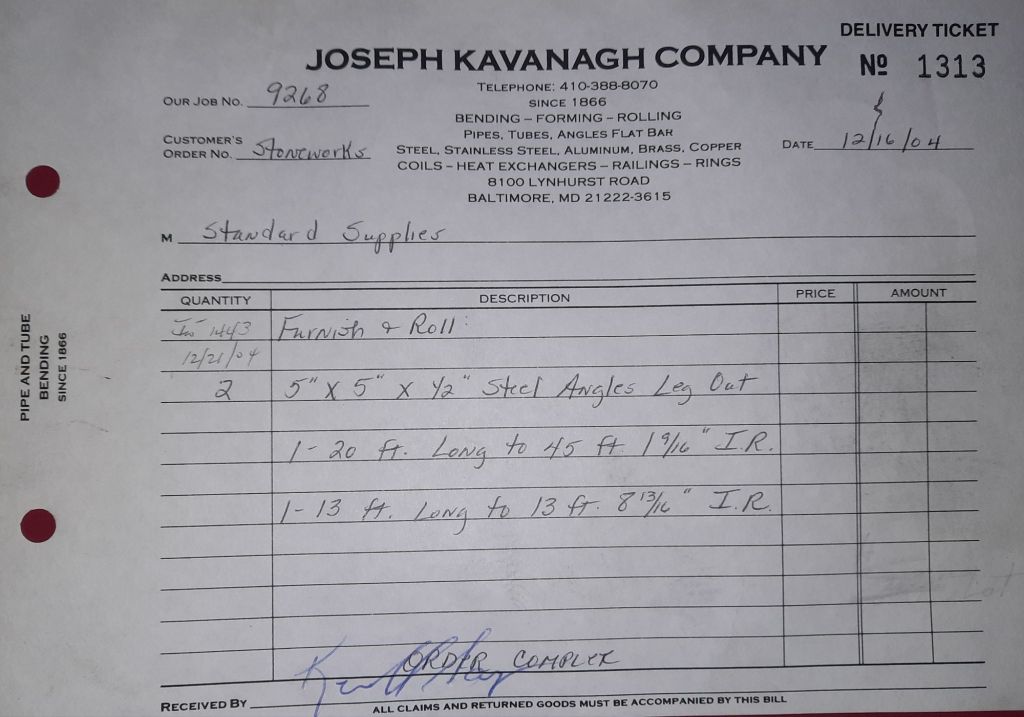 DELIVERY TICKET
JOSEPH KAVANAGH COMPANY
Nº 1313
TELEPHONE: 410-388-8070
OUR JOB NO. 9268
SINCE 1866
BENDING – FORMING – ROLLING
PIPES, TUBES, ANGLES FLAT BAR
CUSTOMER'S ORDER NO. Stoneworks
STEEL, STAINLESS STEEL, ALUMINUM, BRASS, COPPER
DATE 12/16/04
COILS – HEAT EXCHANGERS – RAILINGS – RINGS
8100 LYNHURST ROAD
BALTIMORE, MD 21222-3615
M Standard Supplies
ADDRESS
QUANTITY DESCRIPTION PRICE AMOUNT
1443 Furnish & Roll:
12/21/04
2 5" X 5" X 1/2" Steel Angles Leg Out
1- 20 ft. Long to 45 ft 1 9/16" I.R.
1- 13 ft. Long to 13 ft. 8 13/16" I.R.
ORDER COMPLETE
RECEIVED BY
ALL CLAIMS AND RETURNED GOODS MUST BE ACCOMPANIED BY THIS BILL
PIPE AND TUBE
BENDING
SINCE 1866